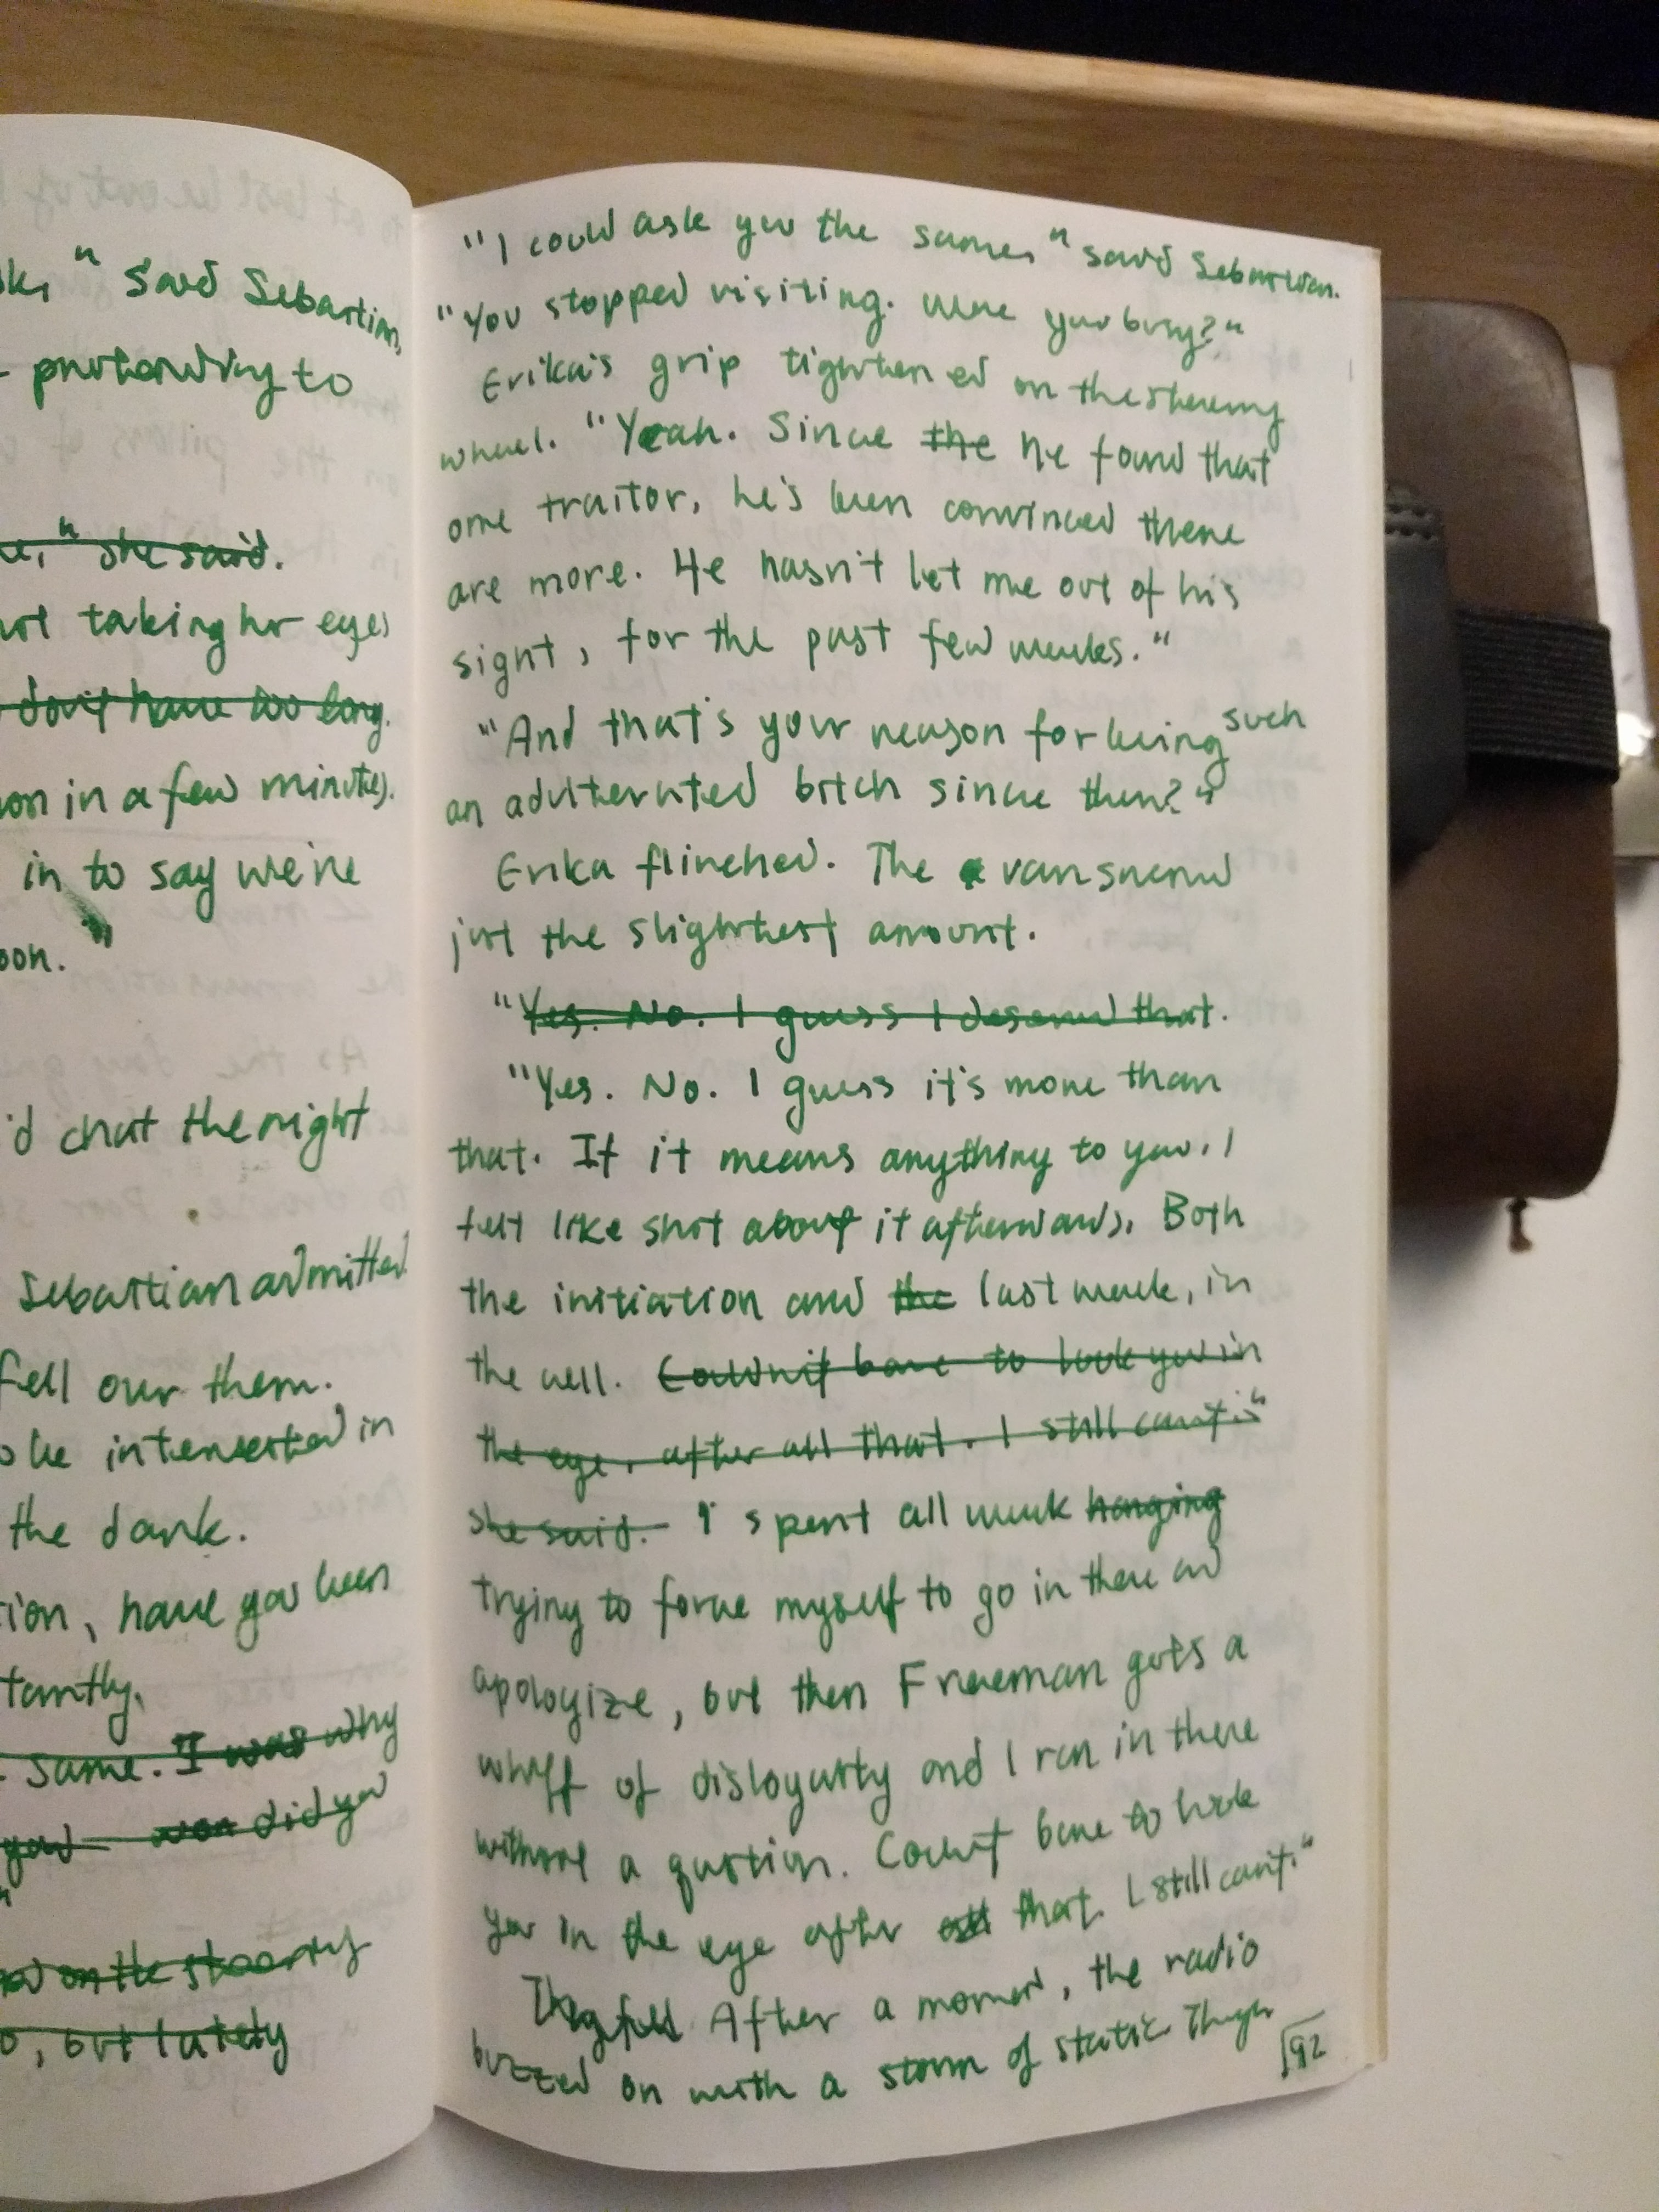 ks," said Sebastian,
pretending to
e," she said.
not taking hr eyes
don't have too long.
on in a few minutes.
in to say we're
oon.
'd chat the night
Sebastian admitted
fell over them.
o be interested in
the dark.
tion, have you been
tantly.
same. I was why
you did you
on the steering
o, but lately
"I could ask you the same," said Sebastian.
"You stopped visiting. Were you busy?"
Erika's grip tightened on the steering
wheel. "Yeah. Since the he found that
one traitor, he's been convinced there
are more. He hasn't let me out of his
sight, for the past few weeks."
"And that's your reason for being such
an adulterated bitch since then?"
Erika flinched. The van swerved
just the slightest amount.
"Yes. No. I guess I deserved that.
"Yes. No. I guess it's more than
that. If it means anything to you, I
felt like shit about it afterwards. Both
the initiation and the last week, in
the cell. Couldn't bare to look you in
the eye, after all that. I still can't."
she said. I spent all week hanging
trying to force myself to go in there and
apologize, but then Freeman gets a
whiff of disloyalty and I ran in there
without a question. Couldn't bare to look
you in the eye after all that. I still can't."
They fell After a moment, the radio
buzzed on with a storm of static. Though
92